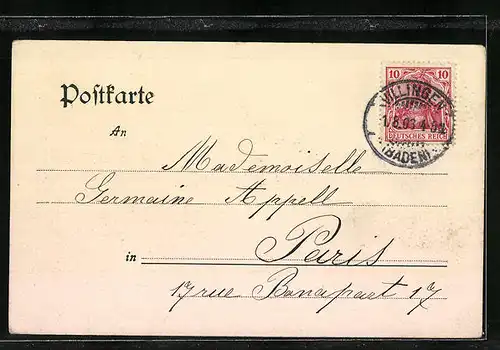 10 10
VILLINGEN
1/8.03.4-5N
(BADEN)
DEUTSCHES REICH
Postkarte
An
Mademoiselle
Germaine Appell
in Paris
17 rue Bonapart 17